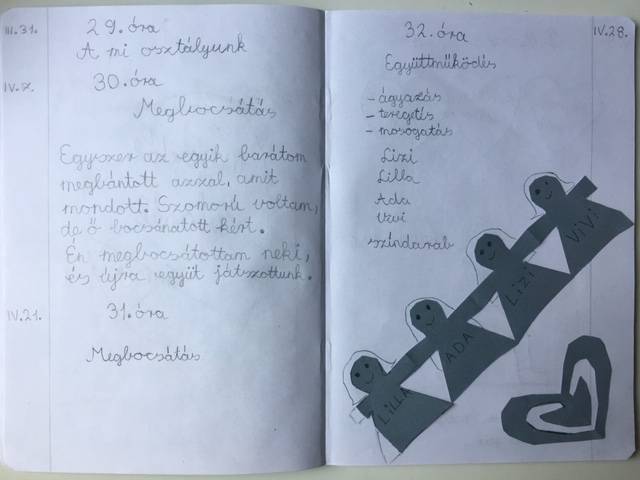 III.31. 29. óra
A mi osztályunk
IV.7. 30. óra
Megbocsátás
Egyszer az egyik barátom
megbántott azzal, amit
mondott. Szomorú voltam,
de ő bocsánatott kért.
Én megbocsátottam neki,
és újra együt játszottunk.
IV.21. 31. óra
Megbocsátás
32. óra IV.28.
Együttműködés
- ágyazás
- teregetés
- mosogatás
Lizi
Lilla
Ada
Vivi
színdarab
ViVi
Lizi
ADA
LILLA